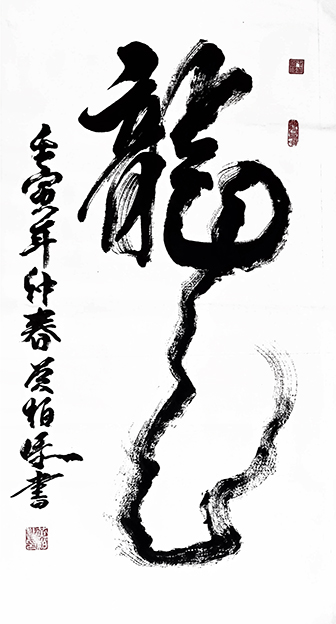 龍
壬寅年仲春柏書